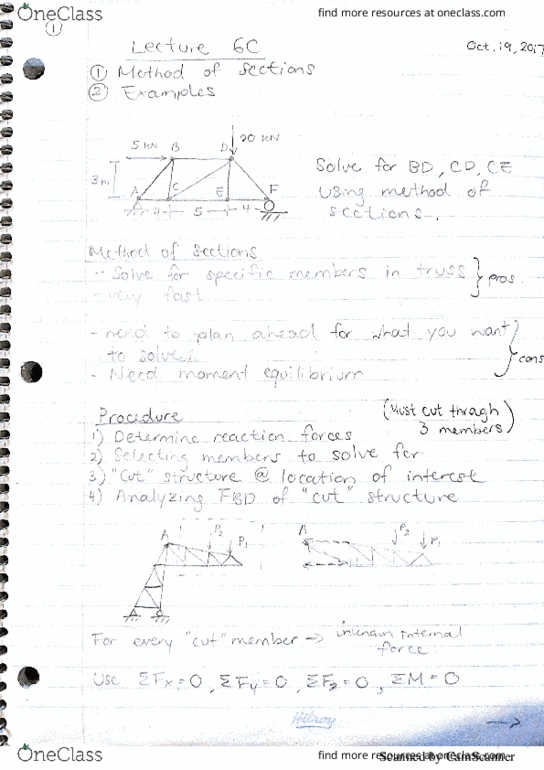 OneClass
find more resources at oneclass.com
1
Lecture 6C
Oct. 19, 2017
① Method of sections
② Examples
5 kN B D 20 kN
3m
A C E F
4 5 4
Solve for BD, CD, CE
using method of
sections.
Method of sections
- Solve for specific members in truss } pros.
- very fast
- need to plan ahead for what you want
to solve.
- Need moment equilibrium } cons
Procedure
(Must cut through
3 members)
1) Determine reaction forces
2) Selecting members to solve for
3) "Cut" structure @ location of interest
4) Analyzing FBD of "cut" structure
A P2 P1
A P2 P1
For every "cut" member → unknown internal
force.
Use ΣFx=0, ΣFy=0, ΣFz=0, ΣM=0
Hilroy
→
OneClass
find more resources at oneclass.com
Scanned by CamScanner